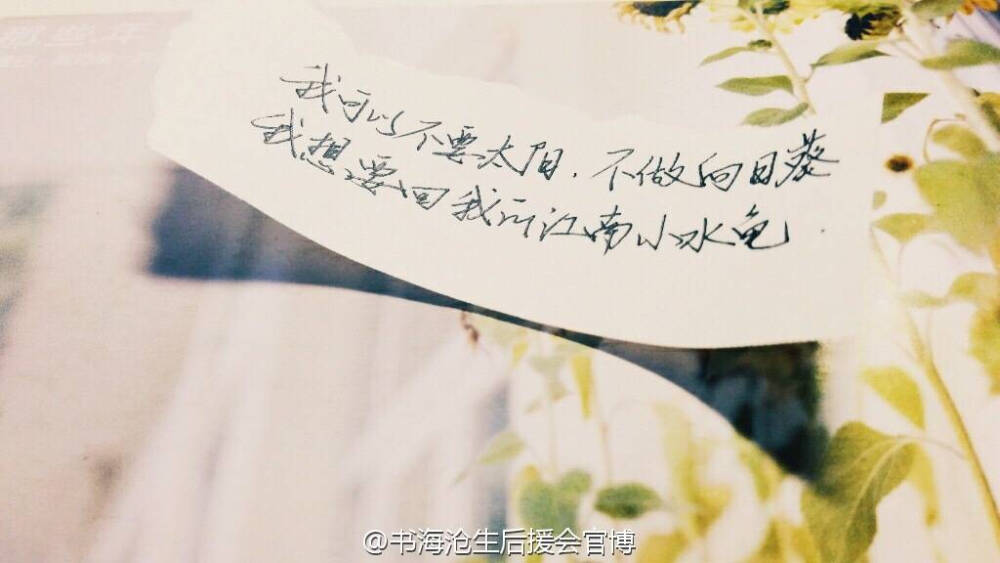 那些年
我可以不要太阳.不做向日葵
我想要回我的江南小水龟.
@书海沧生后援会官博